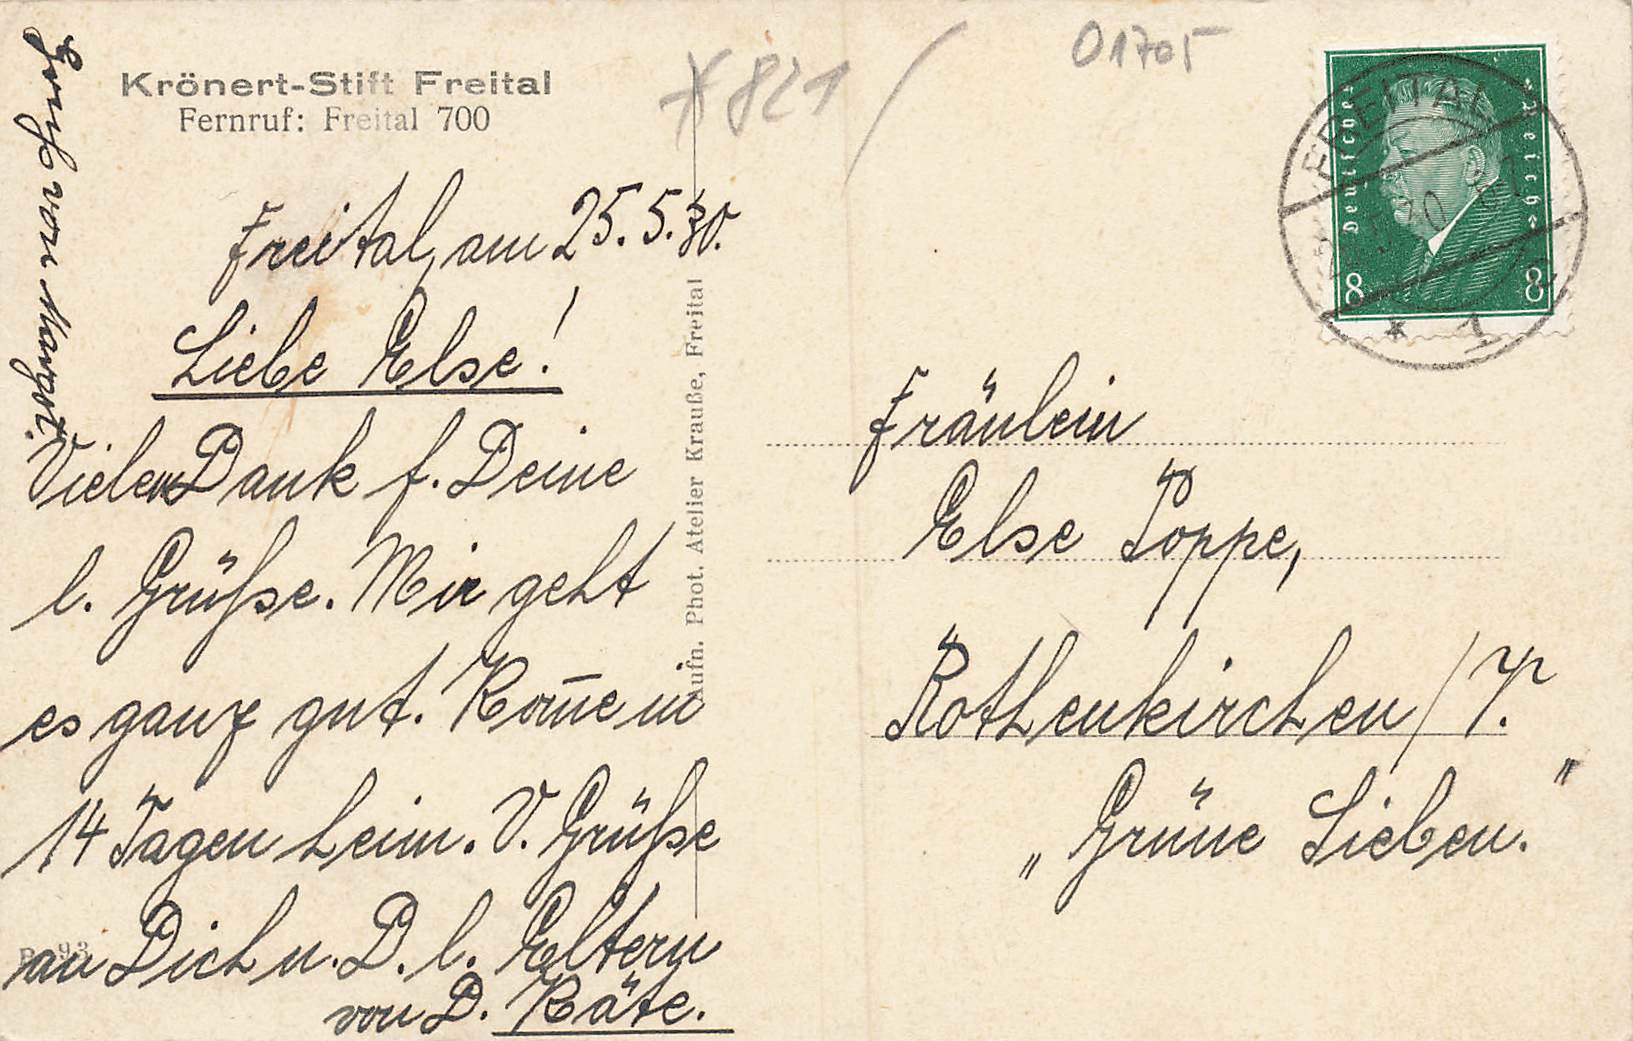 Krönert-Stift Freital
Fernruf: Freital 700
Gruß von Margot.
Freital, am 25.5.30.
Liebe Else!
Vielen Dank f. Deine
l. Grüße. Mir geht
es ganz gut. Kom̅e in
14 Tagen heim. V. Grüße
an Dich u. D. l. Eltern
von D. Käte.
Aufn. Phot. Atelier Krauße, Freital
*821
01705
Deutsches Reich
8 8
FREITAL
* 1
Fräulein
Else Poppe,
Rothenkirchen/V.
„Grüne Lieben."